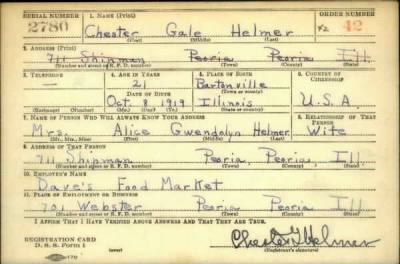 SERIAL NUMBER 1. NAME (Print) ORDER NUMBER
2780 Chester Gale Helmer 42
(First) (Middle) (Last)
2. ADDRESS (Print)
711 Shipman Peoria Peoria Ill.
(Number and street or R. F. D. number) (Town) (County) (State)
3. TELEPHONE 4. AGE IN YEARS 5. PLACE OF BIRTH 6. COUNTRY OF CITIZENSHIP
— 21 Bartonville
DATE OF BIRTH (Town or county)
Oct. 8 1919 Illinois U.S.A.
(Exchange) (Number) (Mo.) (Day) (Yr.) (State or country)
7. NAME OF PERSON WHO WILL ALWAYS KNOW YOUR ADDRESS 8. RELATIONSHIP OF THAT PERSON
Mrs. Alice Gwendolyn Helmer Wife
(Mr., Mrs., Miss) (First) (Middle) (Last)
9. ADDRESS OF THAT PERSON
711 Shipman Peoria, Peoria, Ill.
(Number and street or R. F. D. number) (Town) (County) (State)
10. EMPLOYER'S NAME
Dave's Food Market
11. PLACE OF EMPLOYMENT OR BUSINESS
701 Webster Peoria Peoria Ill.
(Number and street or R. F. D. number) (Town) (County) (State)
I AFFIRM THAT I HAVE VERIFIED ABOVE ANSWERS AND THAT THEY ARE TRUE.
REGISTRATION CARD
D. S. S. Form 1 (over) Chester G Helmer
(Registrant's signature)